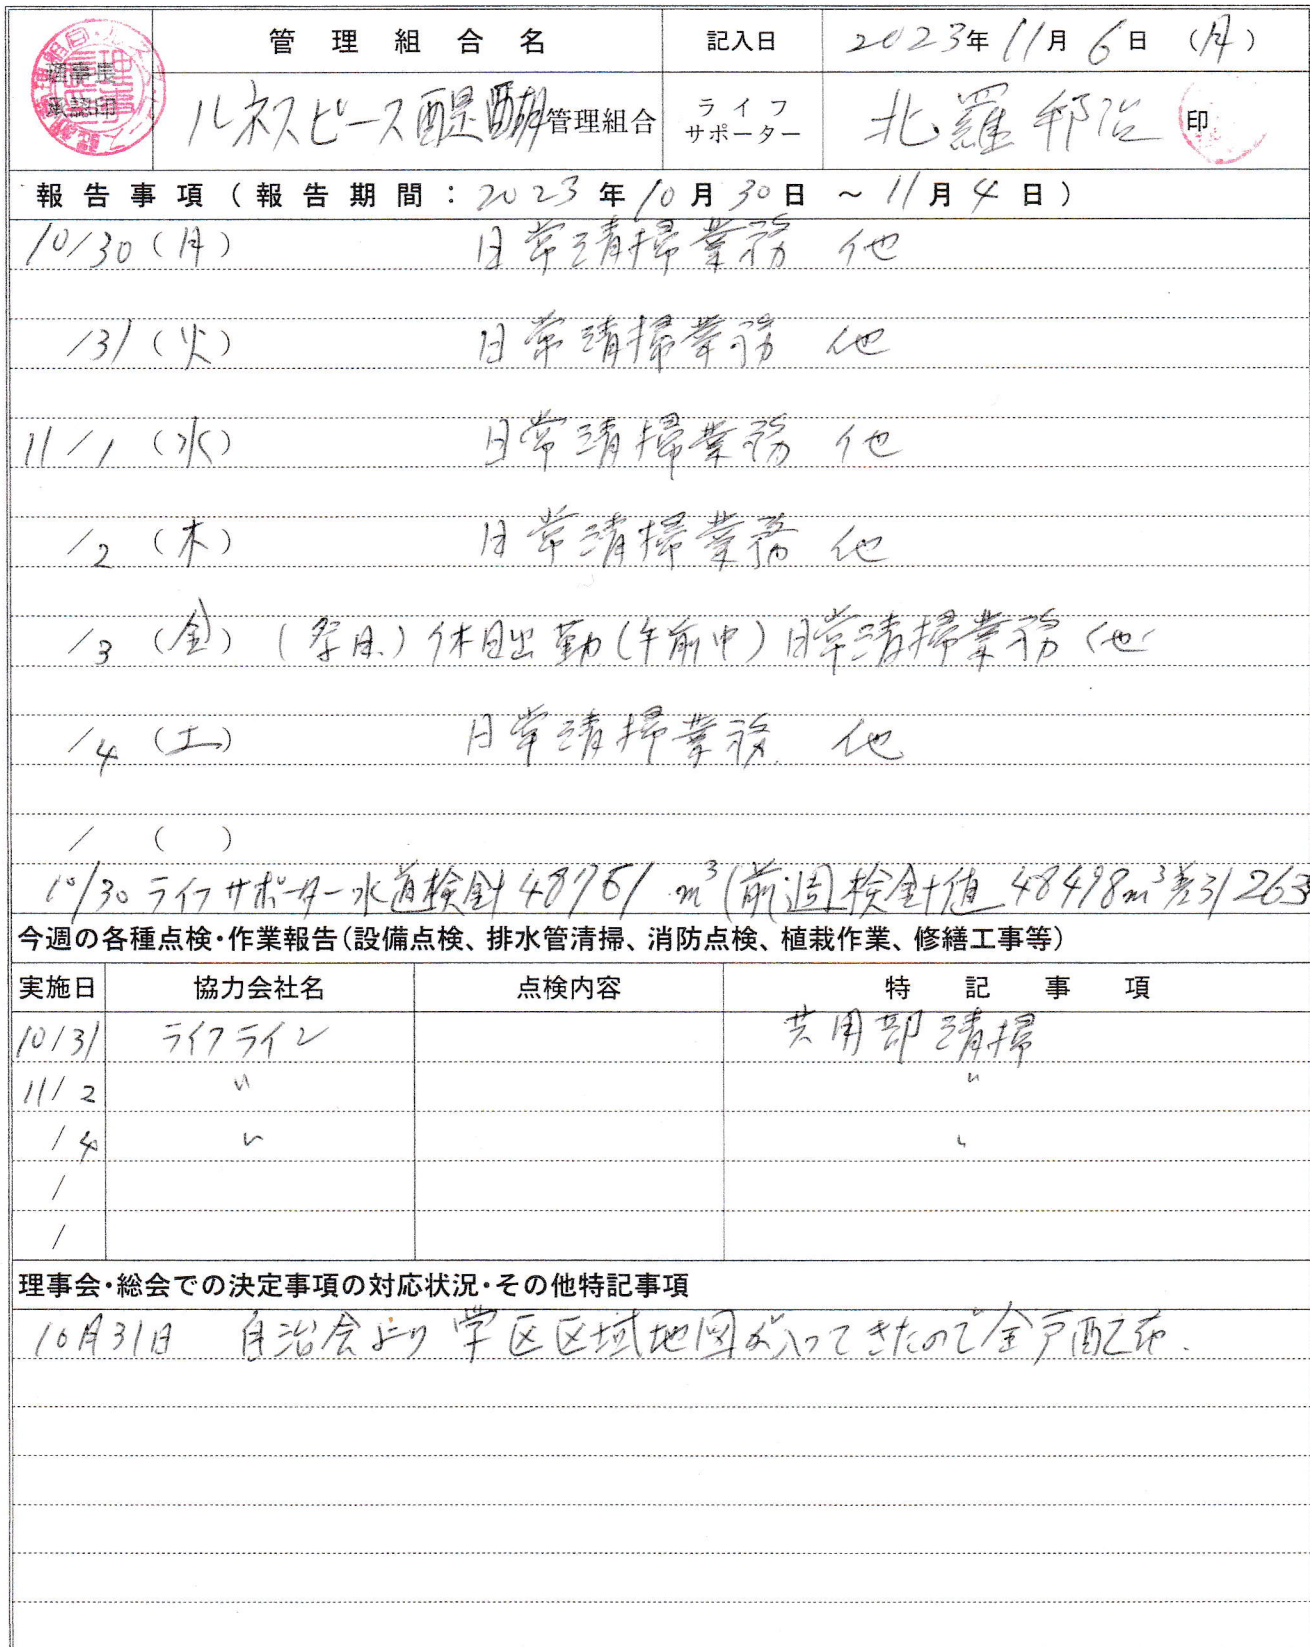 管理組合名 記入日 2023年11月6日(月)
理事長
承認印
ルネスピース醍醐管理組合 ライフ
サポーター 北羅邦治 印
報告事項(報告期間:2023年10月30日 ~ 11月4日)
10/30(月) 日常清掃業務 他
/31(火) 日常清掃業務 他
11/1(水) 日常清掃業務 他
/2(木) 日常清掃業務 他
/3(金)(祭日)休日出勤(午前中)日常清掃業務 他
/4(土) 日常清掃業務 他
/ ( )
10/30 ライフサポーター水道検針48761m³(前週検針値48498m³差引263
今週の各種点検・作業報告(設備点検、排水管清掃、消防点検、植栽作業、修繕工事等)
実施日 協力会社名 点検内容 特記事項
10/31 ライフライン 共用部清掃
11/2 〃 〃
/4 〃 〃
/
/
理事会・総会での決定事項の対応状況・その他特記事項
10月31日 自治会より学区区域地図が入ってきたので全戸配布.